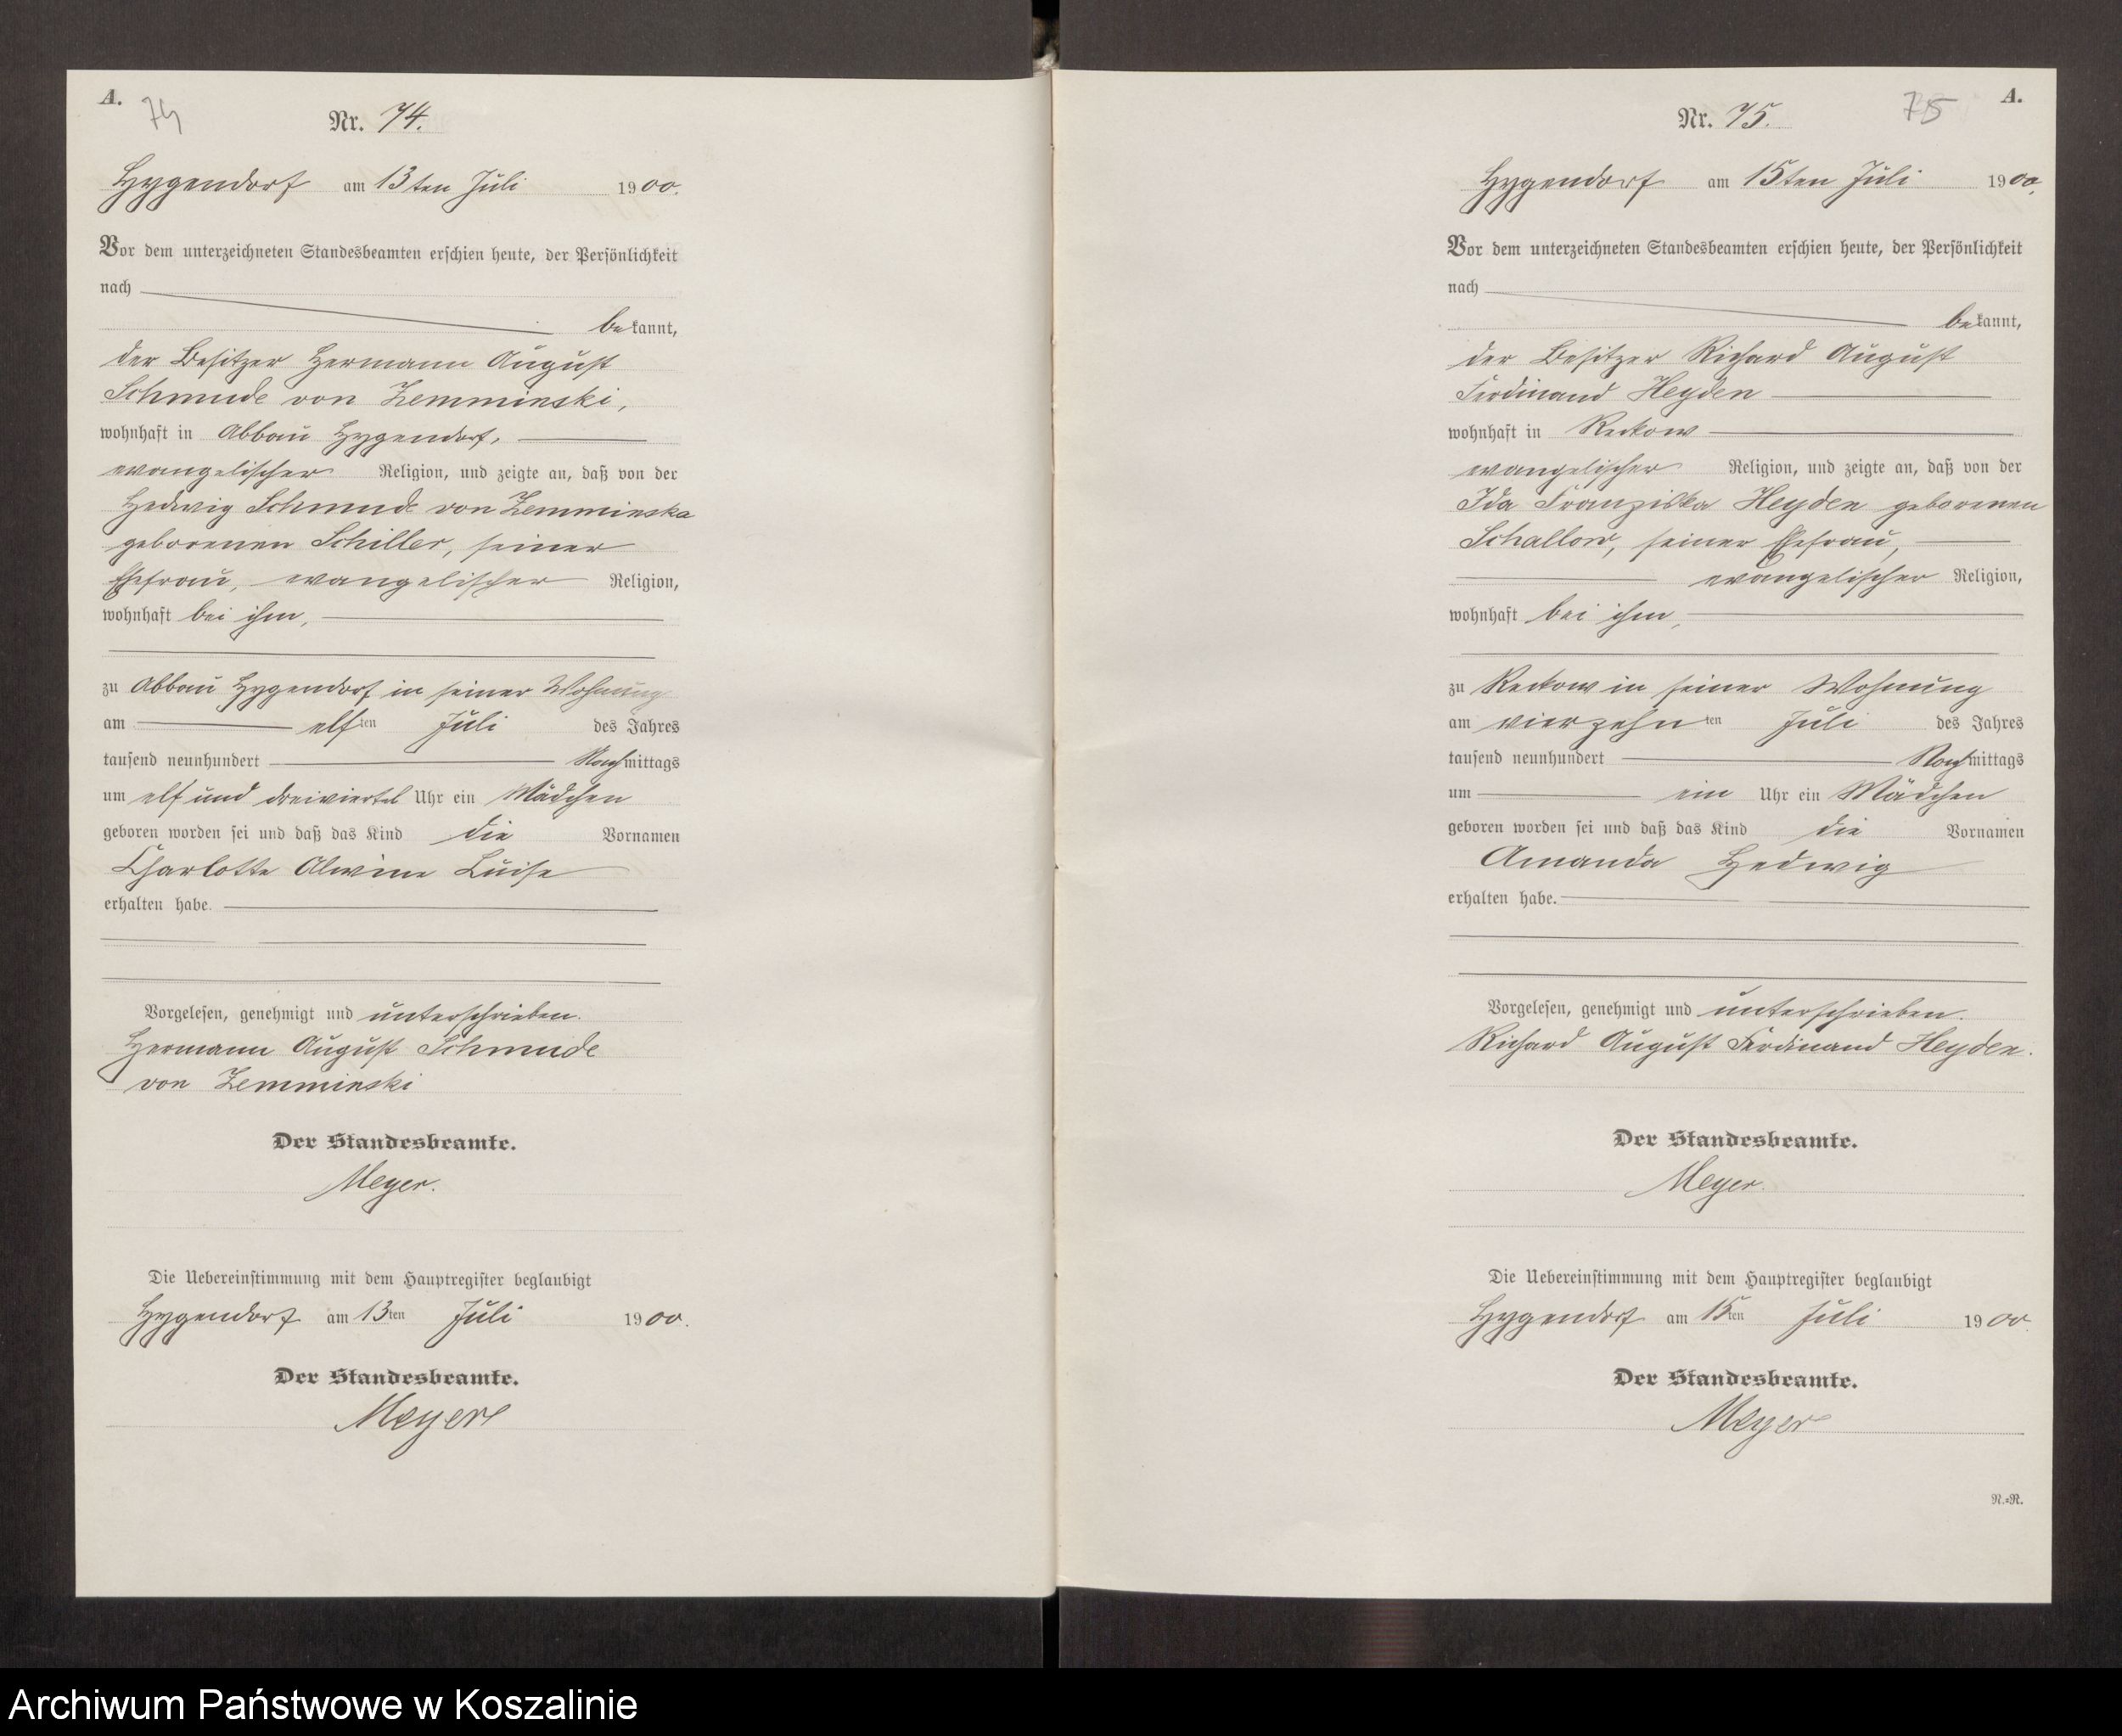 A.
74
Nr. 74.
Hygendorf am 13ten Juli 1900.
Vor dem unterzeichneten Standesbeamten erschien heute, der Persönlichkeit
nach
bekannt,
der Besitzer Hermann August
Schmude von Zemminski,
wohnhaft in Abbau Hygendorf,
evangelischer Religion, und zeigte an, daß von der
Hedwig Schmude von Zemminska
geborenen Schiller, seiner
Ehefrau, evangelischer Religion,
wohnhaft bei ihm,
zu Abbau Hygendorf in seiner Wohnung
am elften Juli des Jahres
tausend neunhundert Nachmittags
um elf und dreiviertel Uhr ein Mädchen
geboren worden sei und daß das Kind die Vornamen
Charlotte Alwine Luise
erhalten habe.
Vorgelesen, genehmigt und unterschrieben.
Hermann August Schmude
von Zemminski
Der Standesbeamte.
Meyer.
Die Uebereinstimmung mit dem Hauptregister beglaubigt
Hygendorf am 13ten Juli 1900.
Der Standesbeamte.
Meyer
A.
75
Nr. 75.
Hygendorf am 15ten Juli 1900.
Vor dem unterzeichneten Standesbeamten erschien heute, der Persönlichkeit
nach
bekannt,
der Besitzer Richard August
Ferdinand Heyden
wohnhaft in Reckow
evangelischer Religion, und zeigte an, daß von der
Ida Franziska Heyden geborenen
Schallow, seiner Ehefrau,
evangelischer Religion,
wohnhaft bei ihm,
zu Reckow in seiner Wohnung
am vierzehnten Juli des Jahres
tausend neunhundert Nachmittags
um ein Uhr ein Mädchen
geboren worden sei und daß das Kind die Vornamen
Amanda Hedwig
erhalten habe.
Vorgelesen, genehmigt und unterschrieben.
Richard August Ferdinand Heyden.
Der Standesbeamte.
Meyer.
Die Uebereinstimmung mit dem Hauptregister beglaubigt
Hygendorf am 15ten Juli 1900.
Der Standesbeamte.
Meyer
N.=R.
Archiwum Państwowe w Koszalinie